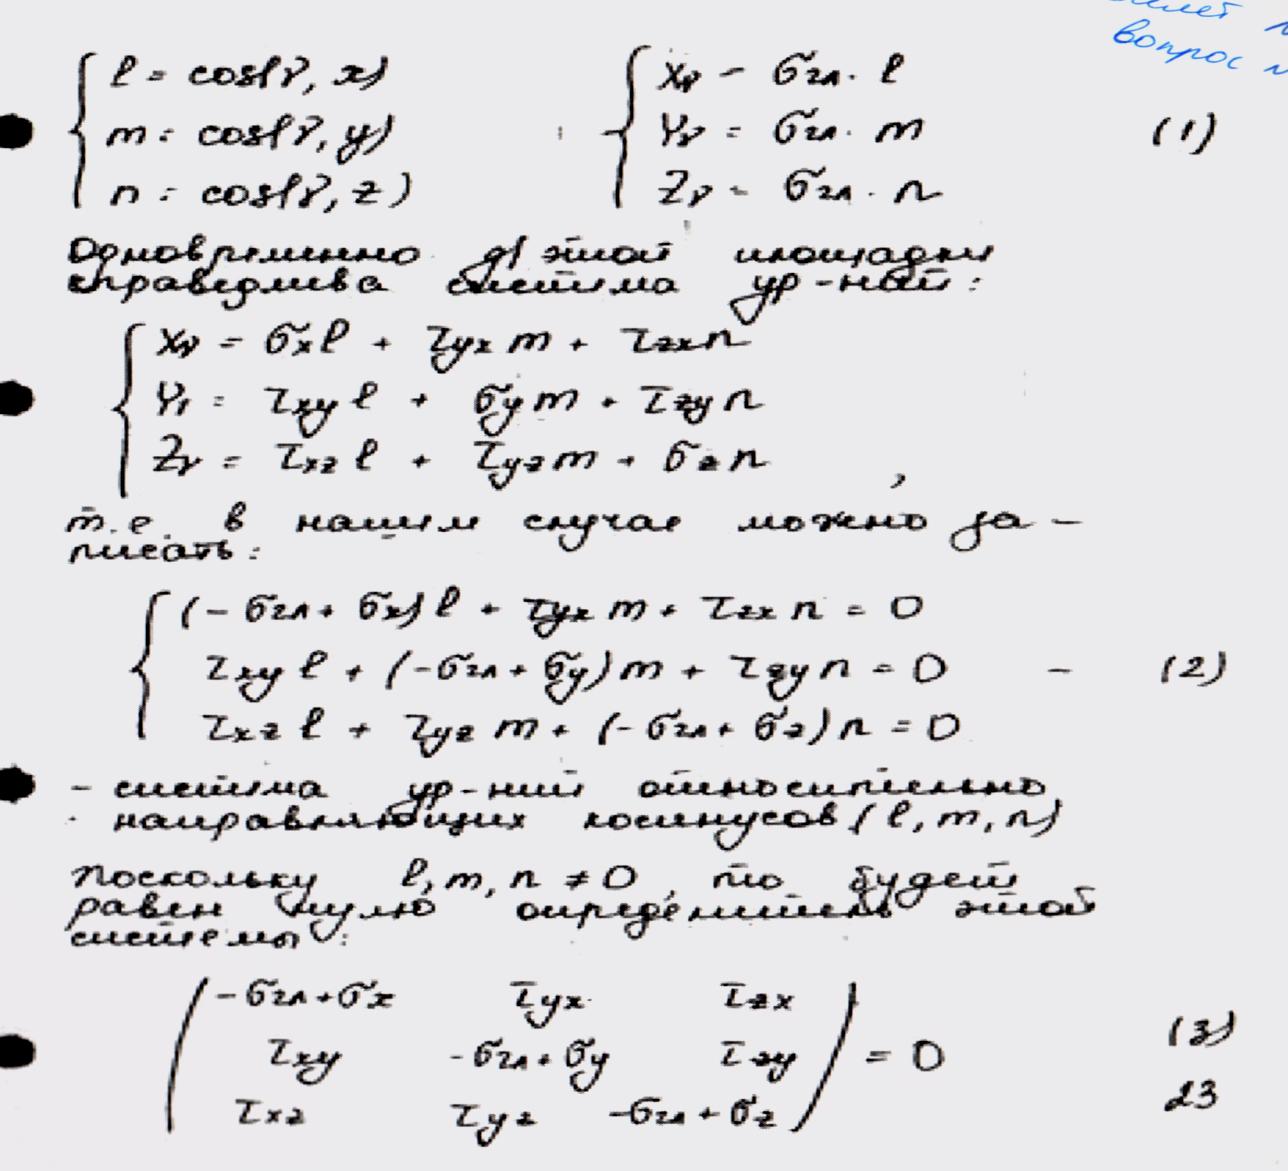 вопрос
{ l = cos(ν, x)   { Xν = σгл · l
m = cos(ν, y)   Yν = σгл · m   (1)
n = cos(ν, z)   Zν = σгл · n
Одновременно д/ этой площадки
справедлива система ур-ний:
{ Xν = σx l + τyx m + τzx n
Yν = τxy l + σy m + τzy n
Zν = τxz l + τyz m + σz n ,
т.е. в нашем случае можно за-
писать:
{ (-σгл + σx) l + τyx m + τzx n = 0
τxy l + (-σгл + σy) m + τzy n = 0 - (2)
τxz l + τyz m + (-σгл + σz) n = 0
- система ур-ний относительно
направляющих косинусов (l, m, n)
Поскольку l, m, n ≠ 0, то будет
равен нулю определитель этой
системы:
| -σгл + σx   τyx   τzx |
| τxy   -σгл + σy   τzy | = 0   (3)
| τxz   τyz   -σгл + σz |
23